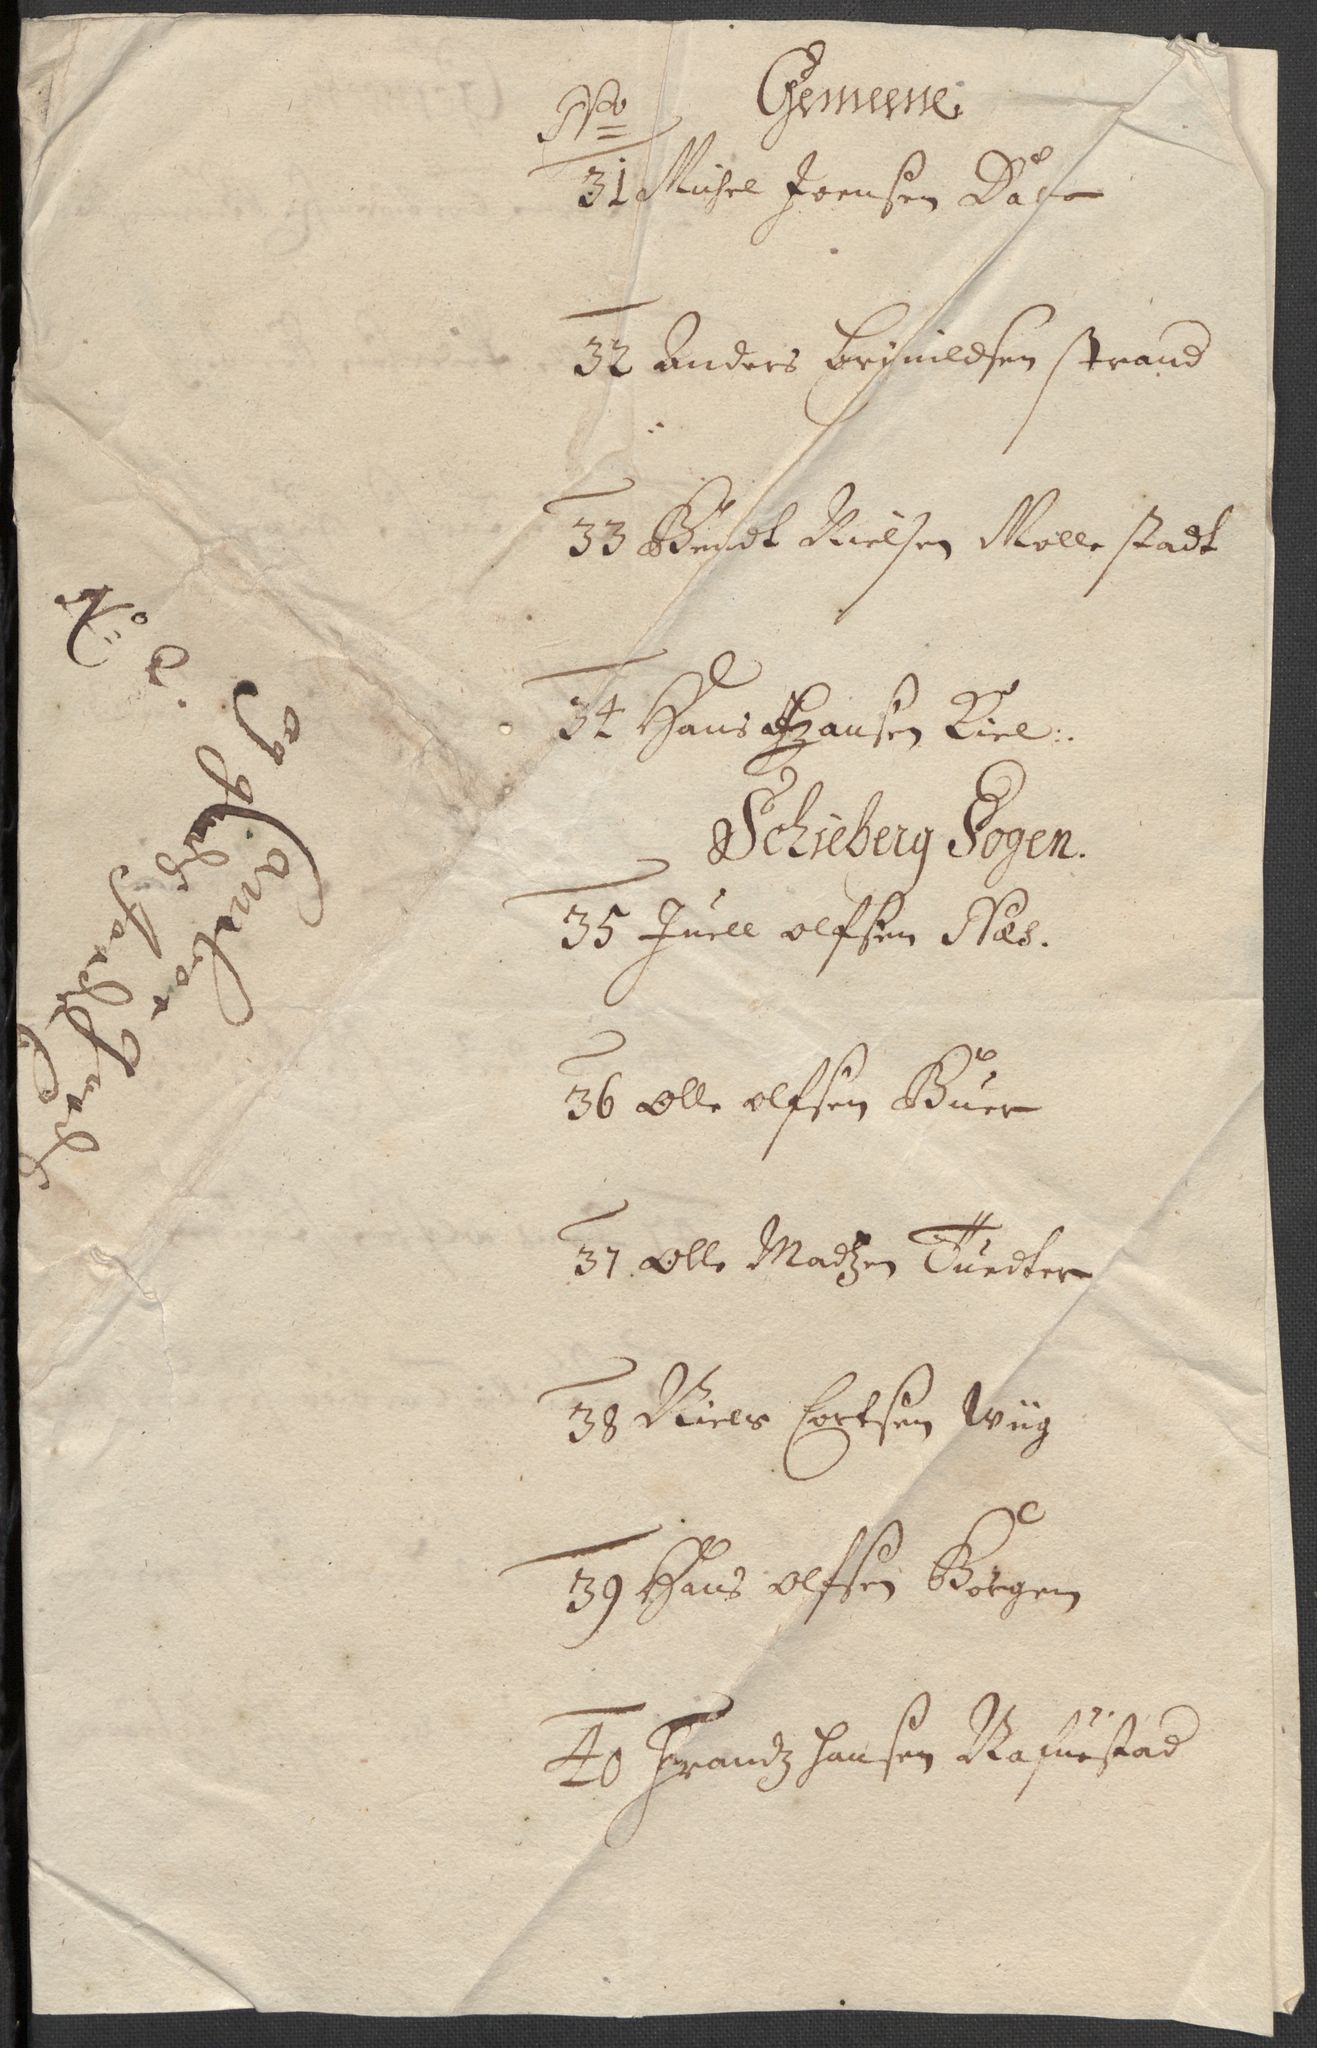 No Gemeene
31 Michel Joensen
32 Anders Brynildsen Strand
33 Bendt Nielsen Mollestadt
34 Hans Hansen Kiel:.
Schieberg Sogen.
35 Juell olfsen Næs.
36 olle olfsen Büer
37 olle Madtzen Tuedter
38 Niels Cortsen Wiig
39 Hans olfsen Borgen
40 Frandtz Hansen Rafnestad
No 2.
og